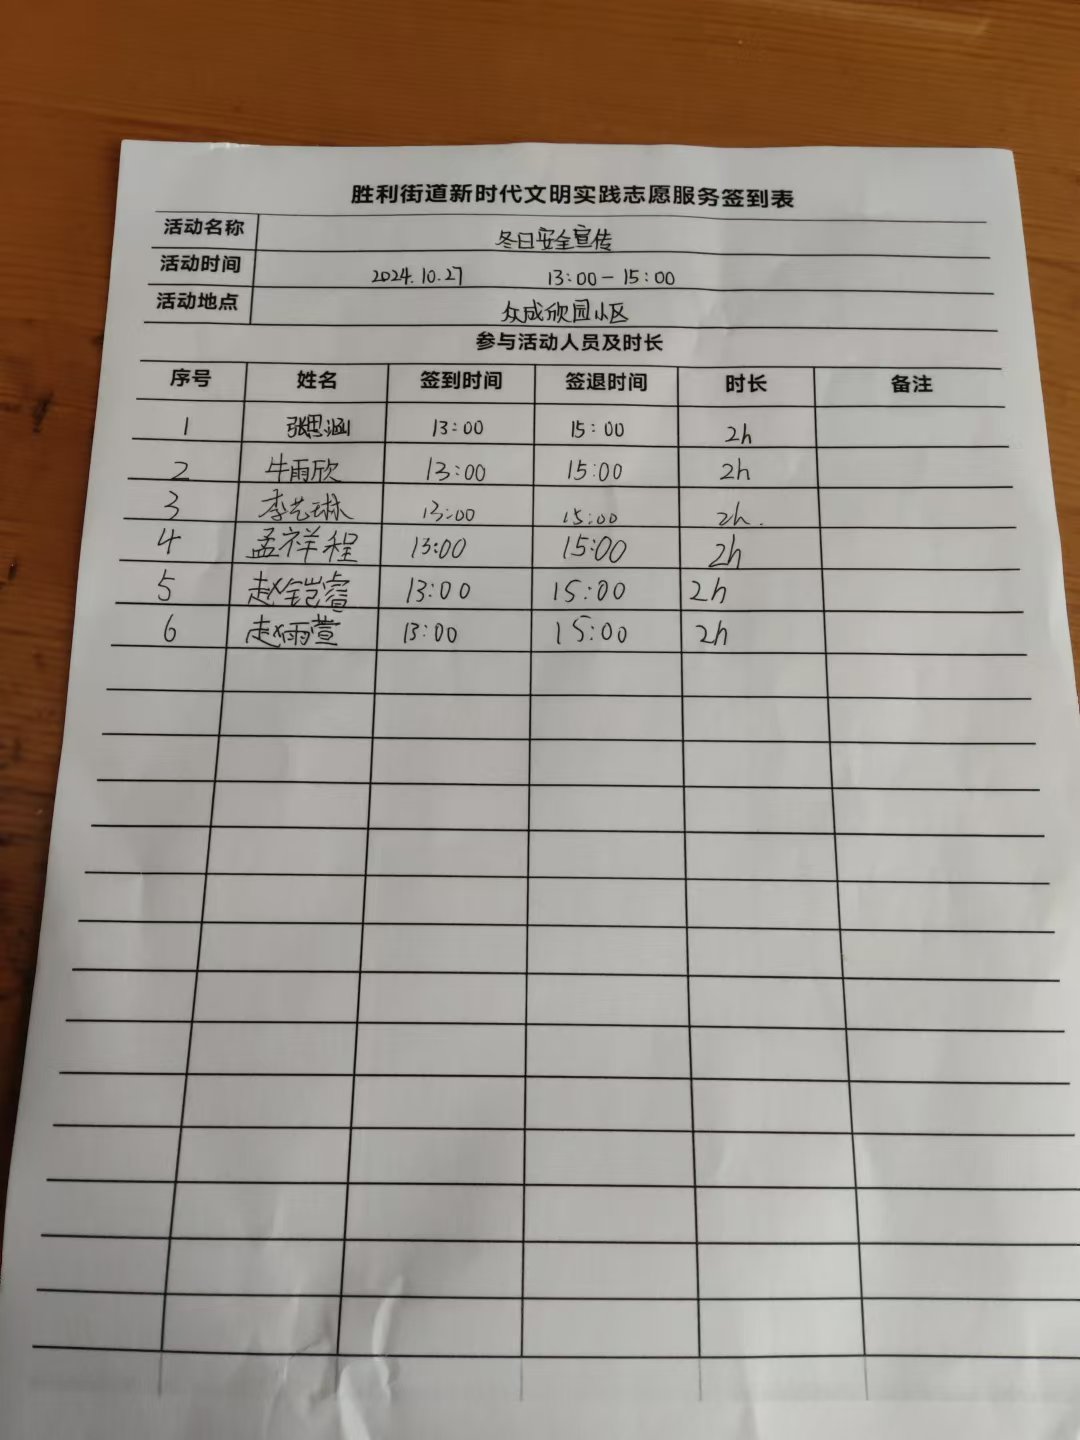 胜利街道新时代文明实践志愿服务签到表
活动名称 冬日安全宣传
活动时间 2024.10.27 13:00-15:00
活动地点 众成欣园小区
参与活动人员及时长
序号 姓名 签到时间 签退时间 时长 备注
1 张思涵 13:00 15:00 2h
2 牛雨欣 13:00 15:00 2h
3 李艺琳 13:00 15:00 2h.
4 孟祥程 13:00 15:00 2h
5 赵铠睿 13:00 15:00 2h
6 赵雨萱 13:00 15:00 2h